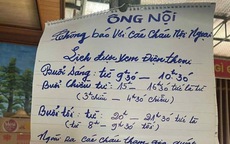 ÔNG NỘI
Thông báo Với Các Cháu Nội Ngoại
Lịch được xem Điện thoại
Buổi sáng: từ 9h30 - 10h30
Buổi Chiều từ: 15 - 16h30
(3h chiều - 4h30 chiều)
Buổi tối: từ: 20h - 21h30
(từ 8h - 9h30 tối)
Ngoài ra các cháu tham gia